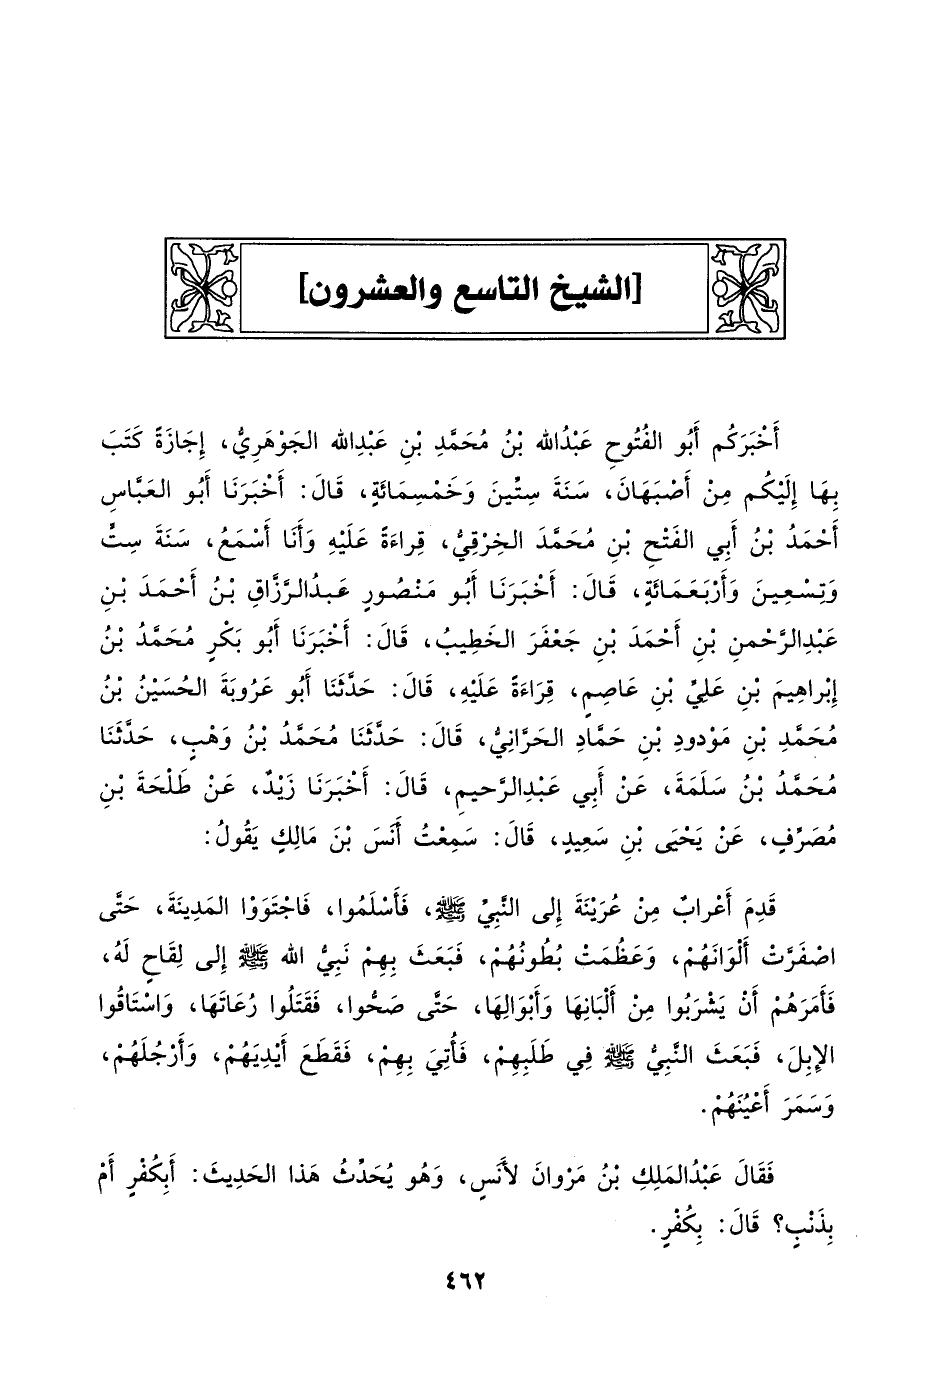 [الشيخ التاسع والعشرون]
أَخْبَرَكُم أَبُو الفُتُوحِ عَبْدُالله بْنُ مُحَمَّدِ بْنِ عَبْدِالله الجَوْهَرِيُّ، إِجَازَةً كَتَبَ
بِهَا إِلَيْكُم مِنْ أَصْبَهَانَ، سَنَةَ سِتِّينَ وَخَمْسِمَائَةٍ، قَالَ: أَخْبَرَنَا أَبُو العَبَّاسِ
أَحْمَدُ بْنُ أَبِي الفَتْحِ بْنِ مُحَمَّدَ الخِرْقِيُّ، قِراءَةً عَلَيْهِ وَأَنا أَسْمَعُ، سَنَةَ سِتٍّ
وَتِسْعِينَ وَأَرْبَعَمَائَةٍ، قَالَ: أَخْبَرَنَا أَبُو مَنْصُورٍ عَبدُالرَّزَّاقِ بْنُ أَحْمَدَ بْنِ
عَبْدِالرَّحْمنِ بْنِ أَحْمَدَ بْنِ جَعْفَرَ الخَطِيبُ، قَالَ: أَخْبَرَنَا أَبُو بَكْرٍ مُحَمَّدُ بْنُ
إِبْراهِيمَ بْنِ عَلِيِّ بْنِ عَاصِمٍ، قِرَاءَةً عَلَيْهِ، قَالَ: حَدَّثَنَا أَبُو عَرُوبَةَ الحُسَيْنُ بْنُ
مُحَمَّدِ بْنِ مَوْدودِ بْنِ حَمَّادِ الحَرَّانِيُّ، قَالَ: حَدَّثَنَا مُحَمَّدُ بْنُ وَهْبٍ، حَدَّثَنَا
مُحَمَّدُ بْنُ سَلَمَةَ، عَنْ أَبِي عَبْدِالرَّحيمِ، قَالَ: أَخْبَرَنَا زَيْدٌ، عَنْ طَلْحَةَ بْنِ
مُصَرِّفٍ، عَنْ يَحْيَى بْنِ سَعِيدٍ، قَالَ: سَمِعْتُ أَنَسَ بْنَ مَالِكٍ يَقُولُ:
قَدِمَ أَعْرابٌ مِنْ عُرَيْنَةَ إِلى النَّبِيِّ ﷺ، فَأَسْلَمُوا، فَاجْتَوَوْا المَدِينَةَ، حَتَّى
اصْفَرَّتْ أَلْوَانَهُمْ، وَعَظُمَتْ بُطُونُهُمْ، فَبَعَثَ بِهِمْ نَبِيُّ الله ﷺ إِلى لِقَاحٍ لَهُ،
فَأَمَرَهُمْ أَنْ يَشْرَبُوا مِنْ أَلْبَانِهَا وَأَبْوَالِهَا، حَتَّى صَحُّوا، فَقَتَلُوا رُعَاتَهَا، وَاسْتَاقُوا
الإِبِلَ، فَبَعَثَ النَّبِيُّ ﷺ فِي طَلَبِهِمْ، فَأُتِيَ بِهِمْ، فَقَطَعَ أَيْدِيَهُمْ، وَأَرْجُلَهُمْ،
وَسَمَرَ أَعْيُنَهُمْ.
فَقَالَ عَبْدُالمَلِكِ بْنُ مَرْوانَ لأَنَسٍ، وَهُو يُحَدِّثُ هَذا الحَدِيثَ: أَبِكُفْرٍ أَمْ
بِذَنْبٍ؟ قَالَ: بِكُفْرٍ.
٤٦٢